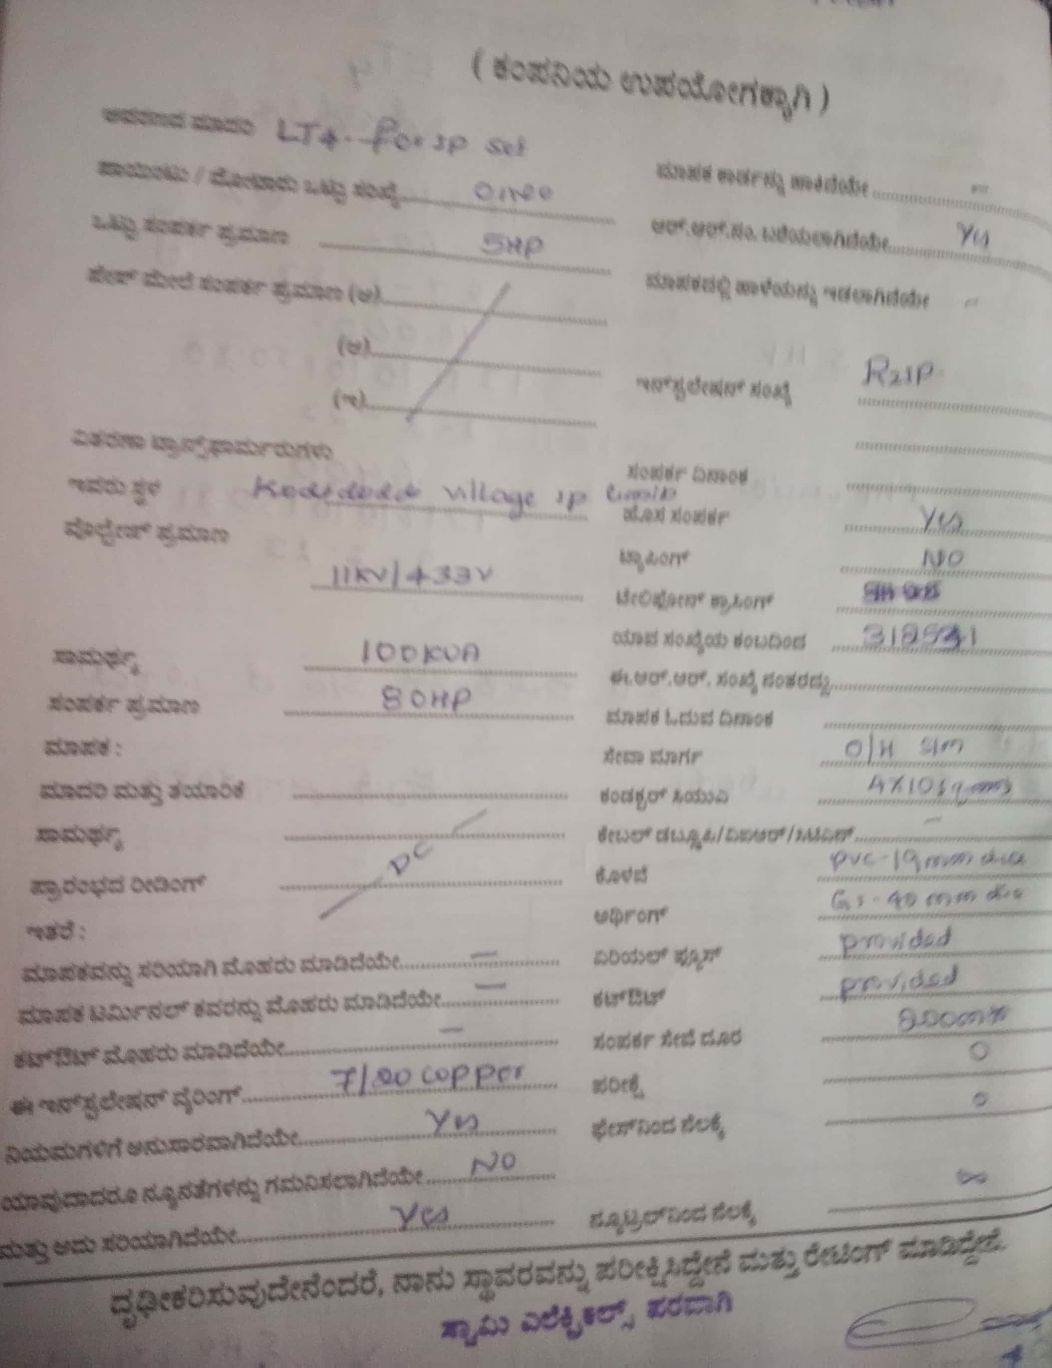 ( ಕಂಪನಿಯ ಉಪಯೋಗಕ್ಕಾಗಿ )
ಆವರಣದ ಮಾದರಿ LT4. For IP Set
ಪಾಯಿಂಟು / ಮೋಟಾರು ಒಟ್ಟು ಸಂಖ್ಯೆ
ಒಟ್ಟು ಸಂಪರ್ಕ ಪ್ರಮಾಣ 5HP
ಫೇಸ್ ಮೇಲೆ ಸಂಪರ್ಕ ಪ್ರಮಾಣ (ಅ)
(ಆ)
(ಇ)
ವಿತರಣಾ ಟ್ರಾನ್ಸ್‌ಫಾರ್ಮರುಗಳು
ಇವರು ಸ್ಥಳ village IP
ವೋಲ್ಟೇಜ್ ಪ್ರಮಾಣ
11KV/433V
ಸಾಮರ್ಥ್ಯ 100KVA
ಸಂಪರ್ಕ ಪ್ರಮಾಣ 80HP
ಮಾಪಕ :
ಮಾದರಿ ಮತ್ತು ತಯಾರಿಕೆ
ಸಾಮರ್ಥ್ಯ
DC
ಪ್ರಾರಂಭದ ರೀಡಿಂಗ್
ಇತರೆ :
ಮಾಪಕವನ್ನು ಸರಿಯಾಗಿ ಮೊಹರು ಮಾಡಿದೆಯೇ —
ಮಾಪಕ ಟರ್ಮಿನಲ್ ಕವರನ್ನು ಮೊಹರು ಮಾಡಿದೆಯೇ —
ಕಟ್‌ಔಟ್ ಮೊಹರು ಮಾಡಿದೆಯೇ —
ಈ ಇನ್‌ಸ್ಟಲೇಷನ್ ವೈರಿಂಗ್ 7/20 copper
ನಿಯಮಗಳಿಗೆ ಅನುಸಾರವಾಗಿದೆಯೇ Yes
ಯಾವುದಾದರೂ ನ್ಯೂನತೆಗಳನ್ನು ಗಮನಿಸಲಾಗಿದೆಯೇ NO
ಮತ್ತು ಅದು ಸರಿಯಾಗಿದೆಯೇ Yes
ಮಾಪಕ ಕಾರ್ಡನ್ನು ಹಾಕಿದೆಯೇ —
ಆರ್.ಆರ್.ನಂ. ಬರೆಯಲಾಗಿದೆಯೇ Yes
ಮಾಪಕದಲ್ಲಿ ಹಾಳೆಯನ್ನು ಇಡಲಾಗಿದೆಯೇ —
ಇನ್‌ಸ್ಟಲೇಷನ್ ಸಂಖ್ಯೆ
ಸಂಪರ್ಕ ದಿನಾಂಕ
ಹೊಸ ಸಂಪರ್ಕ Yes
ಟ್ಯಾಪಿಂಗ್ NO
ಟೆಲಿಫೋನ್ ಕ್ರಾಸಿಂಗ್
ಯಾವ ಸಂಖ್ಯೆಯ ಕಂಬದಿಂದ
ಈ.ಆರ್.ಆರ್. ಸಂಖ್ಯೆ ನಂತರದ್ದು
ಮಾಪಕ ಓದುವ ದಿನಾಂಕ
ಸೇವಾ ಮಾರ್ಗ O/H
ಕಂಡಕ್ಟರ್ ಸಿಯುವಿ 4X10 sqmm
ಕೇಬಲ್ ಡಬ್ಲ್ಯೂಪಿ/ವಿಐಆರ್/ಸಿಟಿಎಸ್ —
ಕೊಳವೆ PVC-19mm dia
ಅರ್ಥಿಂಗ್ GI-40 mm dia
ಏರಿಯಲ್ ಫ್ಯೂಸ್ provided
ಕಟ್‌ಔಟ್ provided
ಸಂಪರ್ಕ ಸೇವೆ ದೂರ
ಪರೀಕ್ಷೆ 0
ಫೇಸ್‌ನಿಂದ ನೆಲಕ್ಕೆ 0
ನ್ಯೂಟ್ರಲ್‌ನಿಂದ ನೆಲಕ್ಕೆ ∞
ದೃಢೀಕರಿಸುವುದೇನೆಂದರೆ, ನಾನು ಸ್ಥಾವರವನ್ನು ಪರೀಕ್ಷಿಸಿದ್ದೇನೆ ಮತ್ತು ರೇಟಿಂಗ್ ಮಾಡಿದ್ದೇನೆ.
ಸ್ವಾಮಿ ಎಲೆಕ್ಟ್ರಿಕಲ್ಸ್ ಪರವಾಗಿ